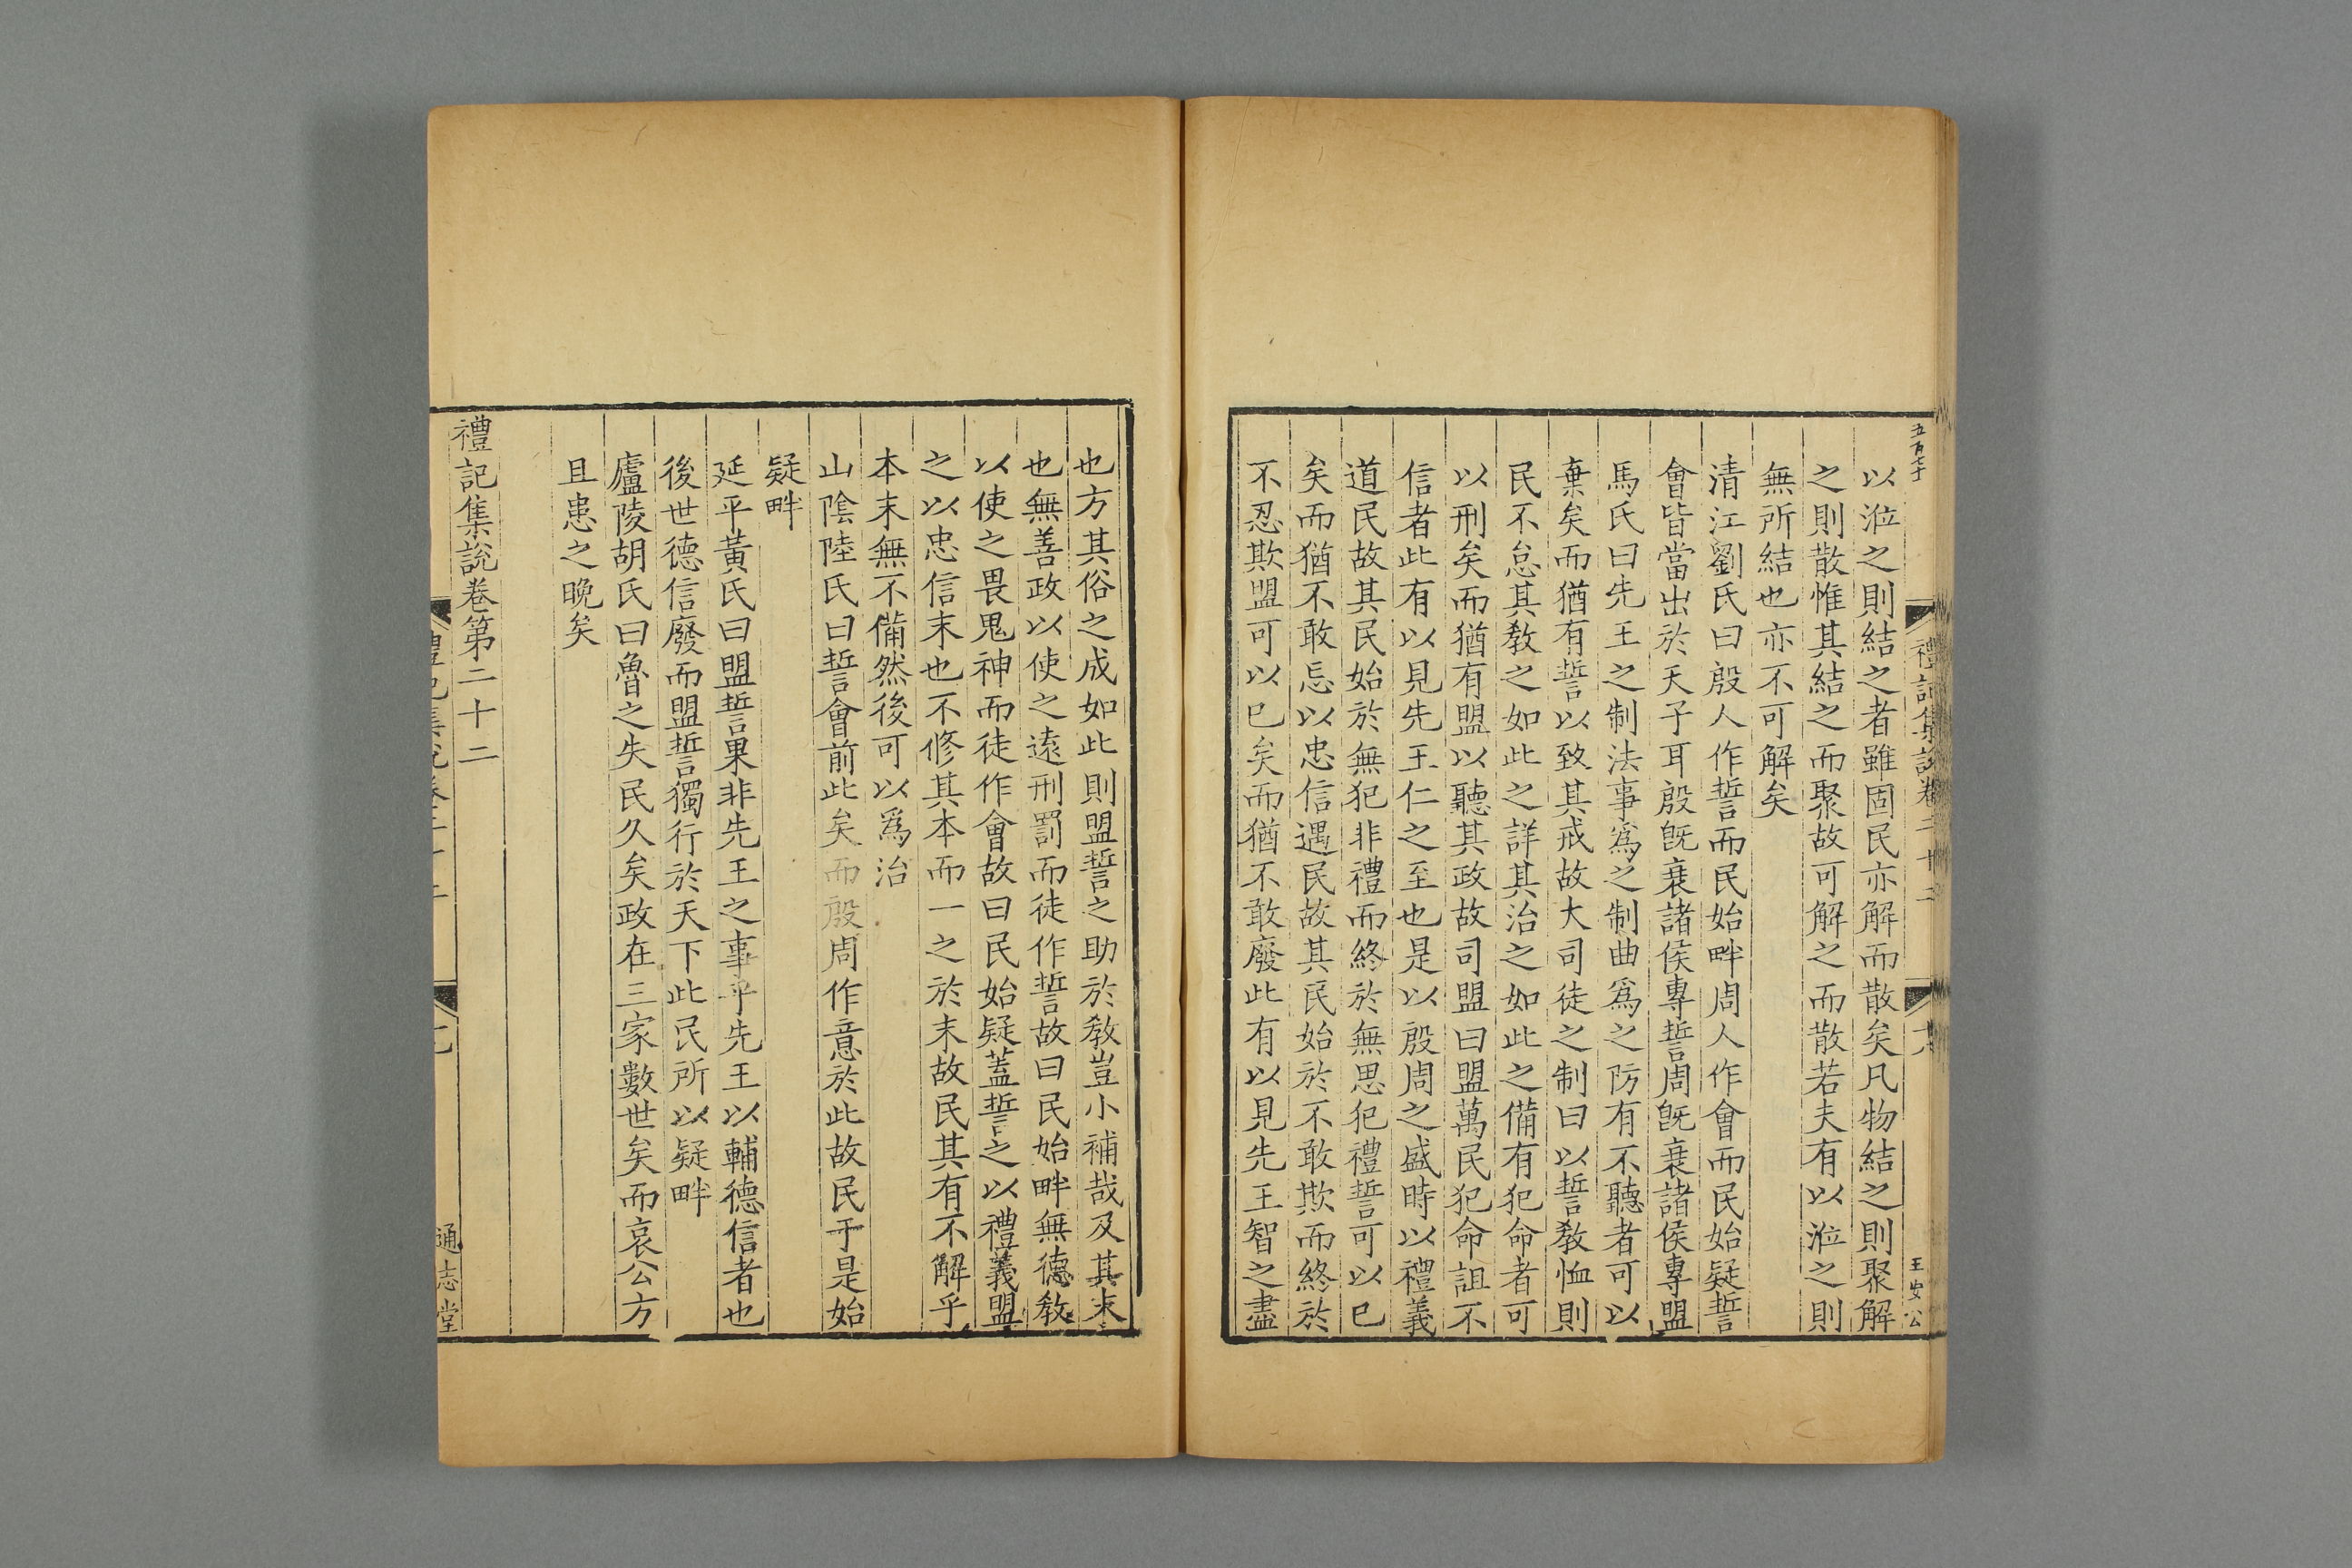 五百七十
禮記集說卷二十二
王安公
以涖之則結之者雖固民亦解而散矣凡物結之則聚解
之則散惟其結之而聚故可解之而散若夫有以涖之則
無所結也亦不可解矣
清江劉氏曰殷人作誓而民始畔周人作會而民始疑誓
會皆當出於天子耳殷旣衰諸侯專誓周旣衰諸侯專盟
馬氏曰先王之制法事爲之制曲爲之防有不聽者可以
棄矣而猶有誓以致其戒故大司徒之制曰以誓敎恤則
民不怠其敎之如此之詳其治之如此之備有犯命者可
以刑矣而猶有盟以聽其政故司盟曰盟萬民犯命詛不
信者此有以見先王仁之至也是以殷周之盛時以禮義
道民故其民始於無犯非禮而終於無思犯禮誓可以已
矣而猶不敢忘以忠信遇民故其民始於不敢欺而終於
不忍欺盟可以已矣而猶不敢廢此有以見先王智之盡
也方其俗之成如此則盟誓之助於敎豈小補哉及其末
也無善政以使之遠刑罰而徒作誓故曰民始畔無德敎
以使之畏鬼神而徒作會故曰民始疑蓋誓之以禮義盟
之以忠信末也不修其本而一之於末故民其有不解乎
本末無不備然後可以爲治
山陰陸氏曰誓會前此矣而殷周作意於此故民于是始
疑畔
延平黃氏曰盟誓果非先王之事乎先王以輔德信者也
後世德信廢而盟誓獨行於天下此民所以疑畔
廬陵胡氏曰魯之失民久矣政在三家數世矣而哀公方
且患之晚矣
禮記集說卷第二十二
通志堂